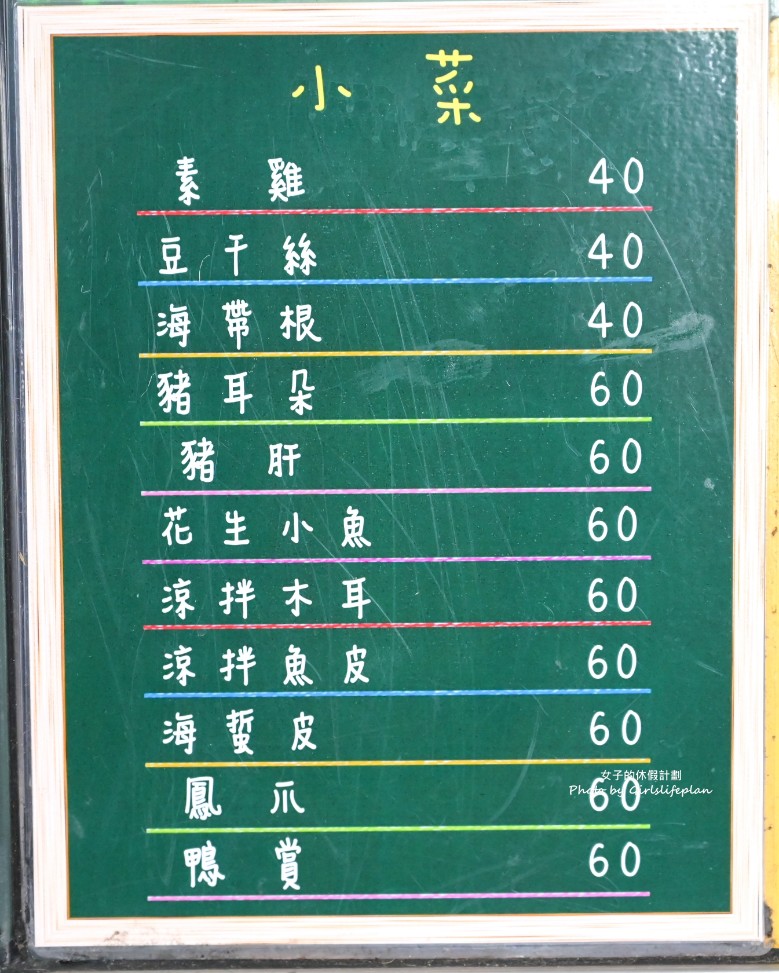 小菜
素雞 40
豆干絲 40
海帶根 40
豬耳朵 60
豬肝 60
花生小魚 60
涼拌木耳 60
涼拌魚皮 60
海蜇皮 60
女子的休假計劃
Photo by Girlslifeplan
鳳爪 60
鴨賞 60